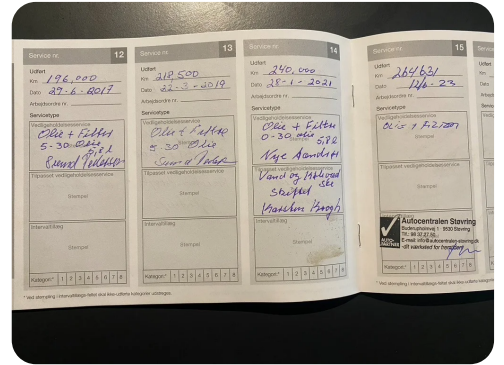 Service nr. 12
Udført
Km 196,000
Dato 29-6-2017
Arbejdsordre nr.
Servicetype
Vedligeholdelsesservice
Olie + Filter
5-30 olie
5,8 l
Svend
Tilpasset vedligeholdelsesservice
Stempel
Intervaltillæg
Stempel
Kategori:* 1 2 3 4 5 6 7 8
* Ved stempling i intervaltillægs-feltet skal ikke-udførte kategorier udstreges.
Service nr. 13
Udført
Km 218,500
Dato 22-3-2019
Arbejdsordre nr.
Servicetype
Vedligeholdelsesservice
Olie + Filter
5-30 olie
Tilpasset vedligeholdelsesservice
Stempel
Intervaltillæg
Stempel
Kategori:* 1 2 3 4 5 6 7 8
Service nr. 14
Udført
Km 240,000
Dato 28-1-2021
Arbejdsordre nr.
Servicetype
Vedligeholdelsesservice
Olie + Filter
0-30 olie 5,8 l
Nye
Tilpasset vedligeholdelsesservice
Vand og
skiftet
Karsten Krogh
Intervaltillæg
Stempel
Kategori:* 1 2 3 4 5 6 7 8
Service nr. 15
Udført
Km 264631
Dato 12/6-23
Arbejdsordre nr.
Servicetype
Vedligeholdelsesservice
Olie + Filter
Tilpasset vedligeholdelsesservice
Stempel
Autocentralen Støvring
9530 Støvring
E-mail: info@autocentralen-stovring.dk
-dit værksted for fremtiden
AUTO-PARTNER
Kategori:* 1 2 3 4 5 6 7 8
* Ved stempling i intervaltillægs-feltet skal ikke-udførte kategorier udstreges.
Service
Udført
Km
Dato